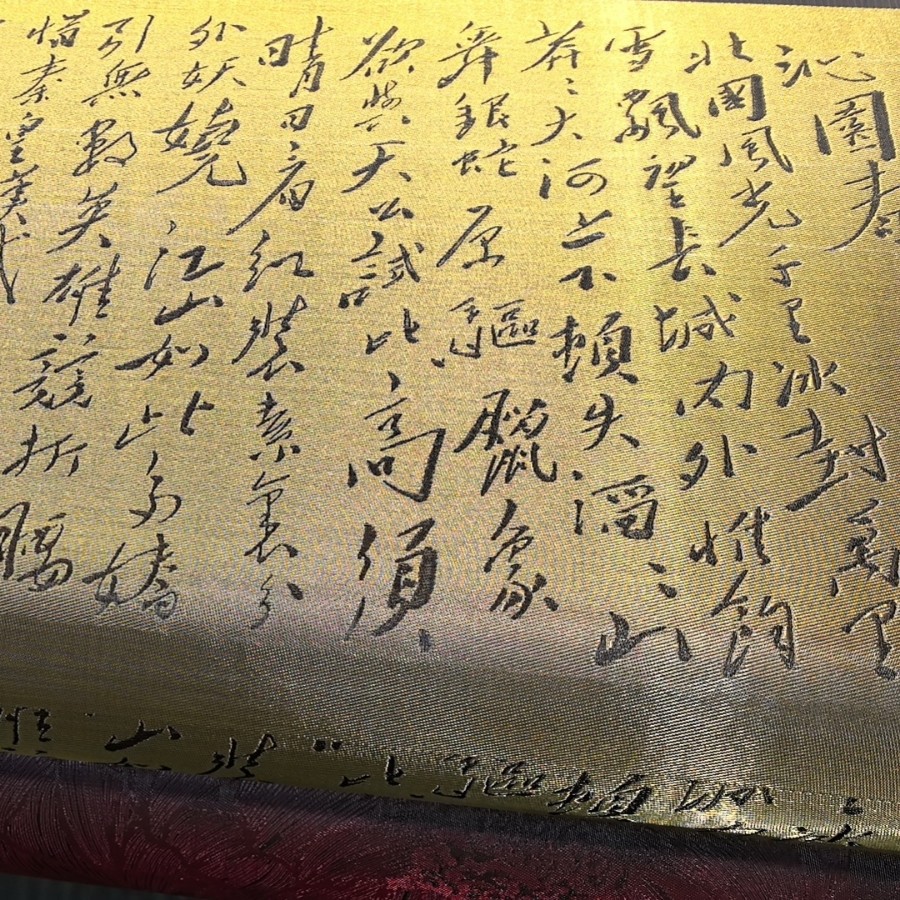 沁園春
北國風光千里冰封萬里
雪飄望長城內外惟餘
莽〻大河上下頓失滔〻山
舞銀蛇原驅臘象
欲與天公試比高須
晴日看紅裝素裹分
外妖嬈江山如此多嬌
引無數英雄競折腰
惜秦皇漢武